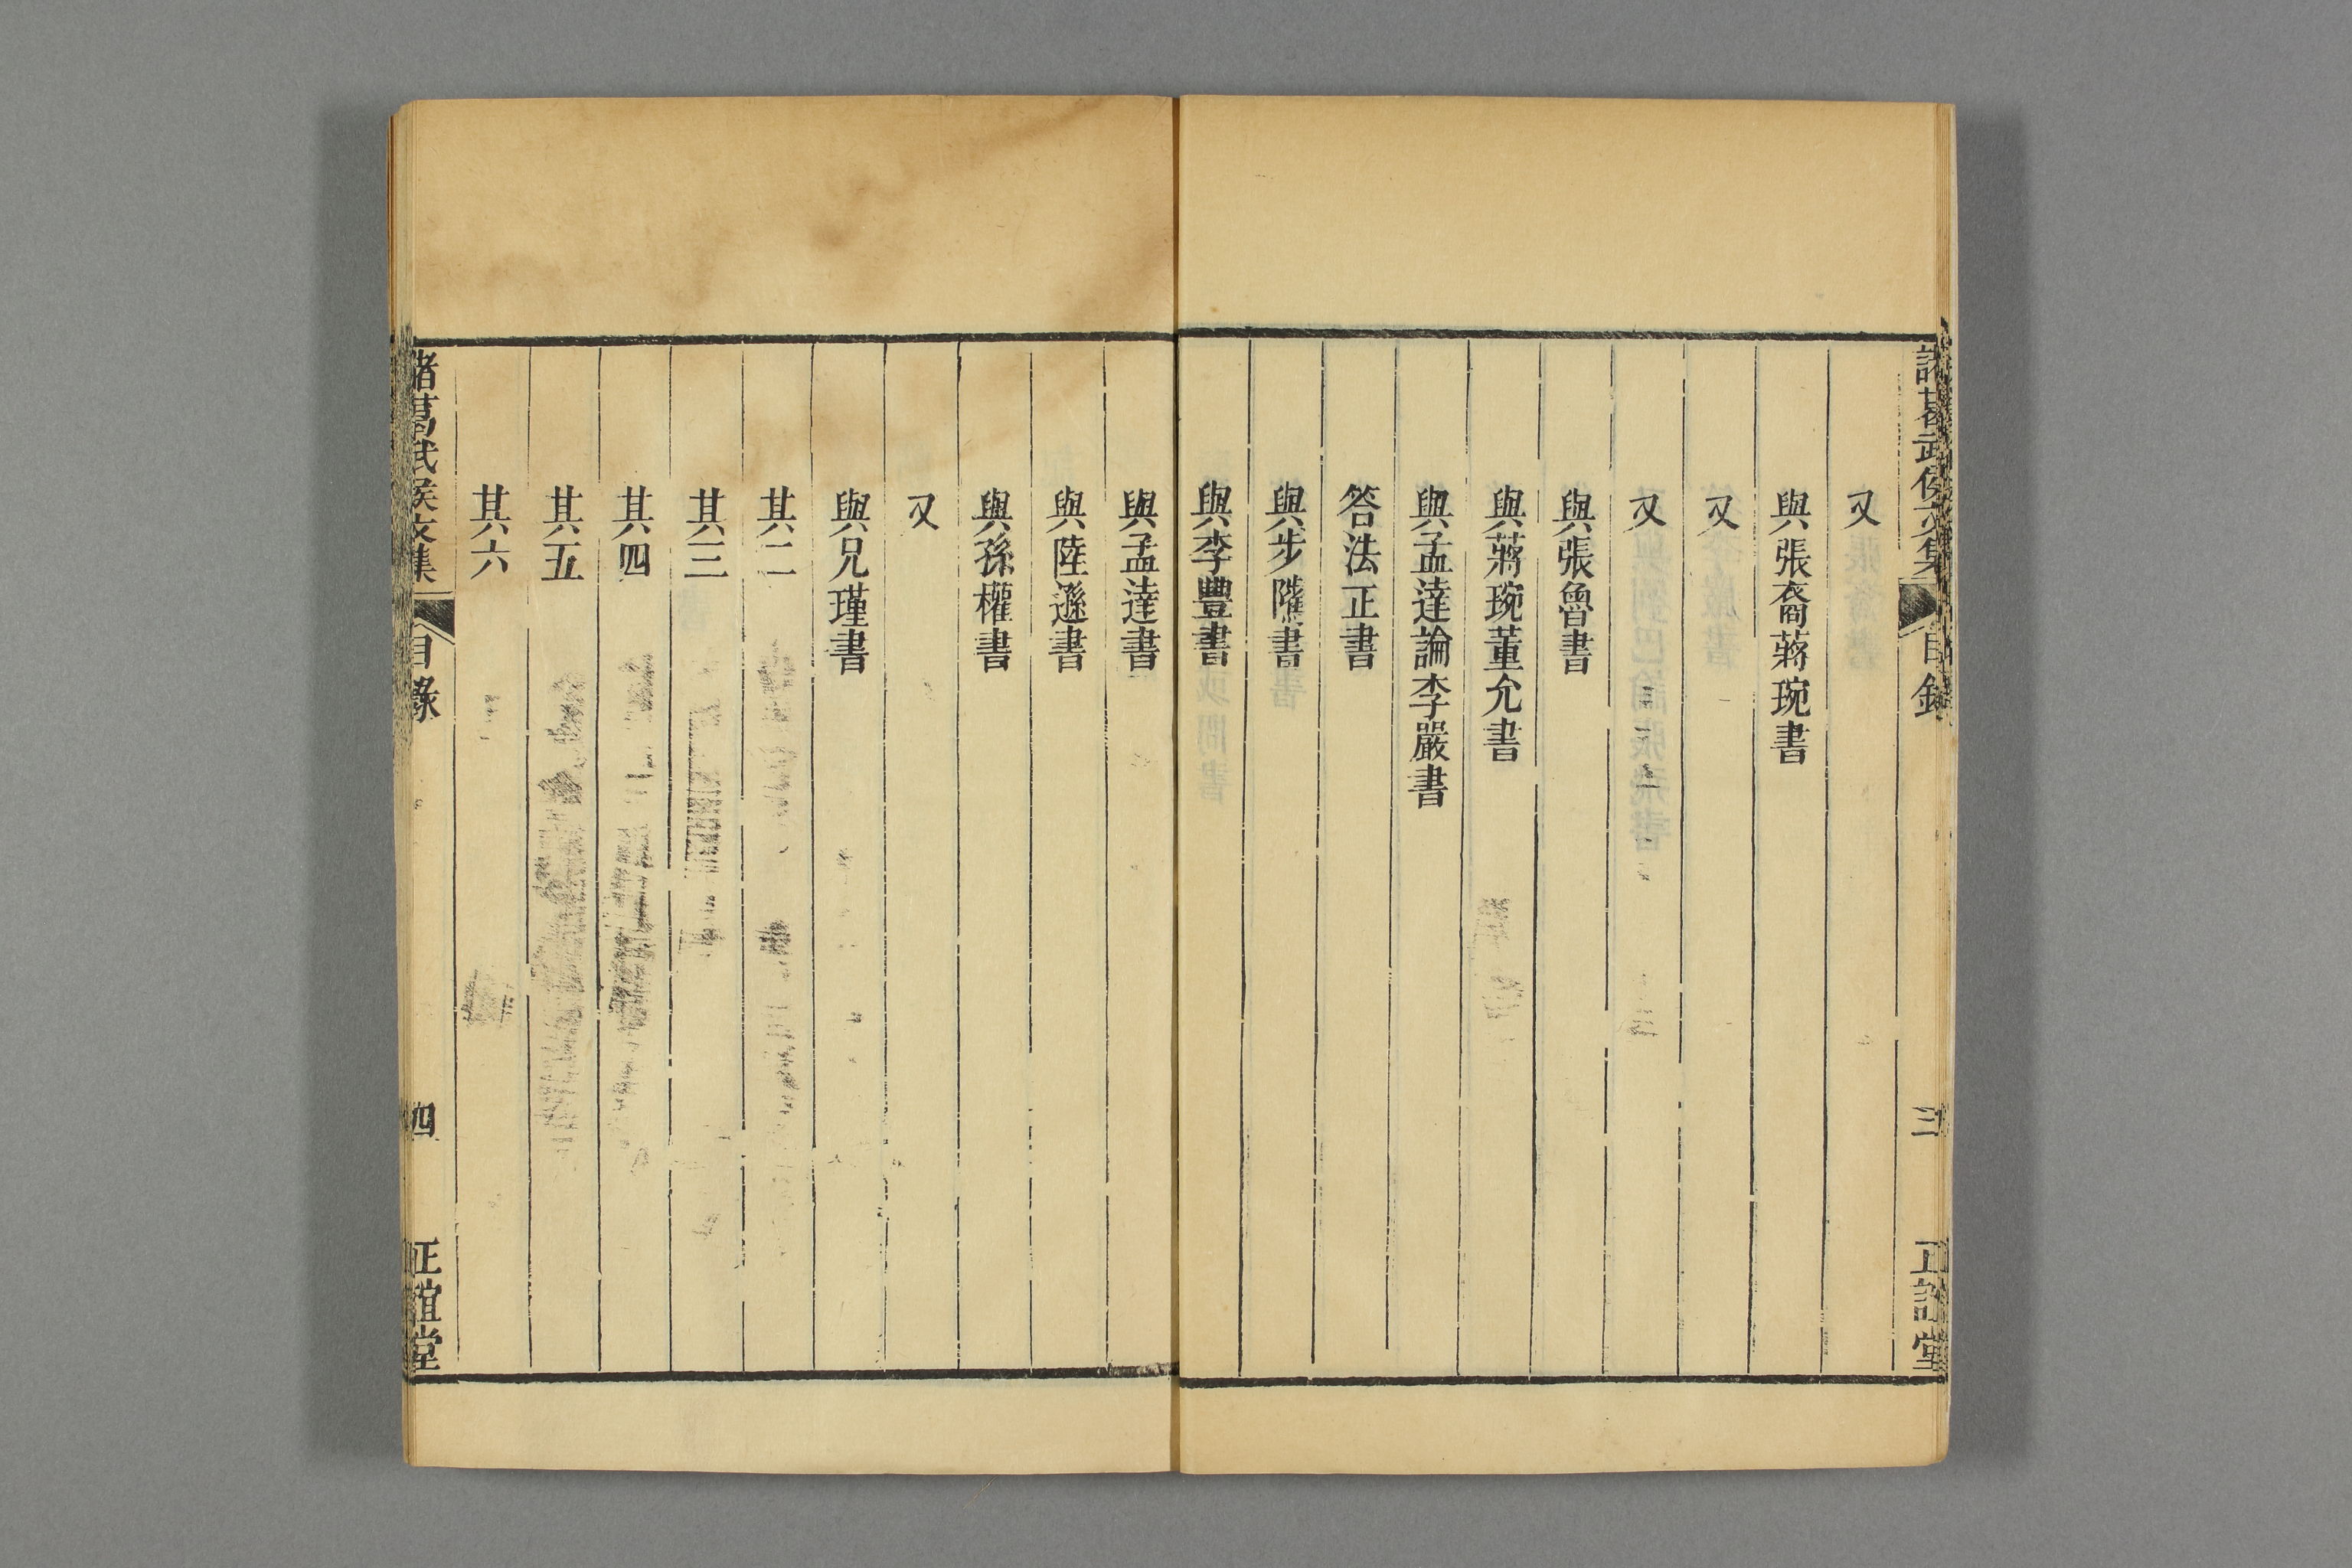 諸葛武侯文集
目錄
三
正誼堂
又
與張裔蔣琬書
又
又
與張魯書
與蔣琬董允書
與孟達論李嚴書
答法正書
與步隲書
與李豐書
與孟達書
與陸遜書
與孫權書
又
與兄瑾書
其二
其三
其四
其五
其六
諸葛武侯文集
目錄
四
正誼堂